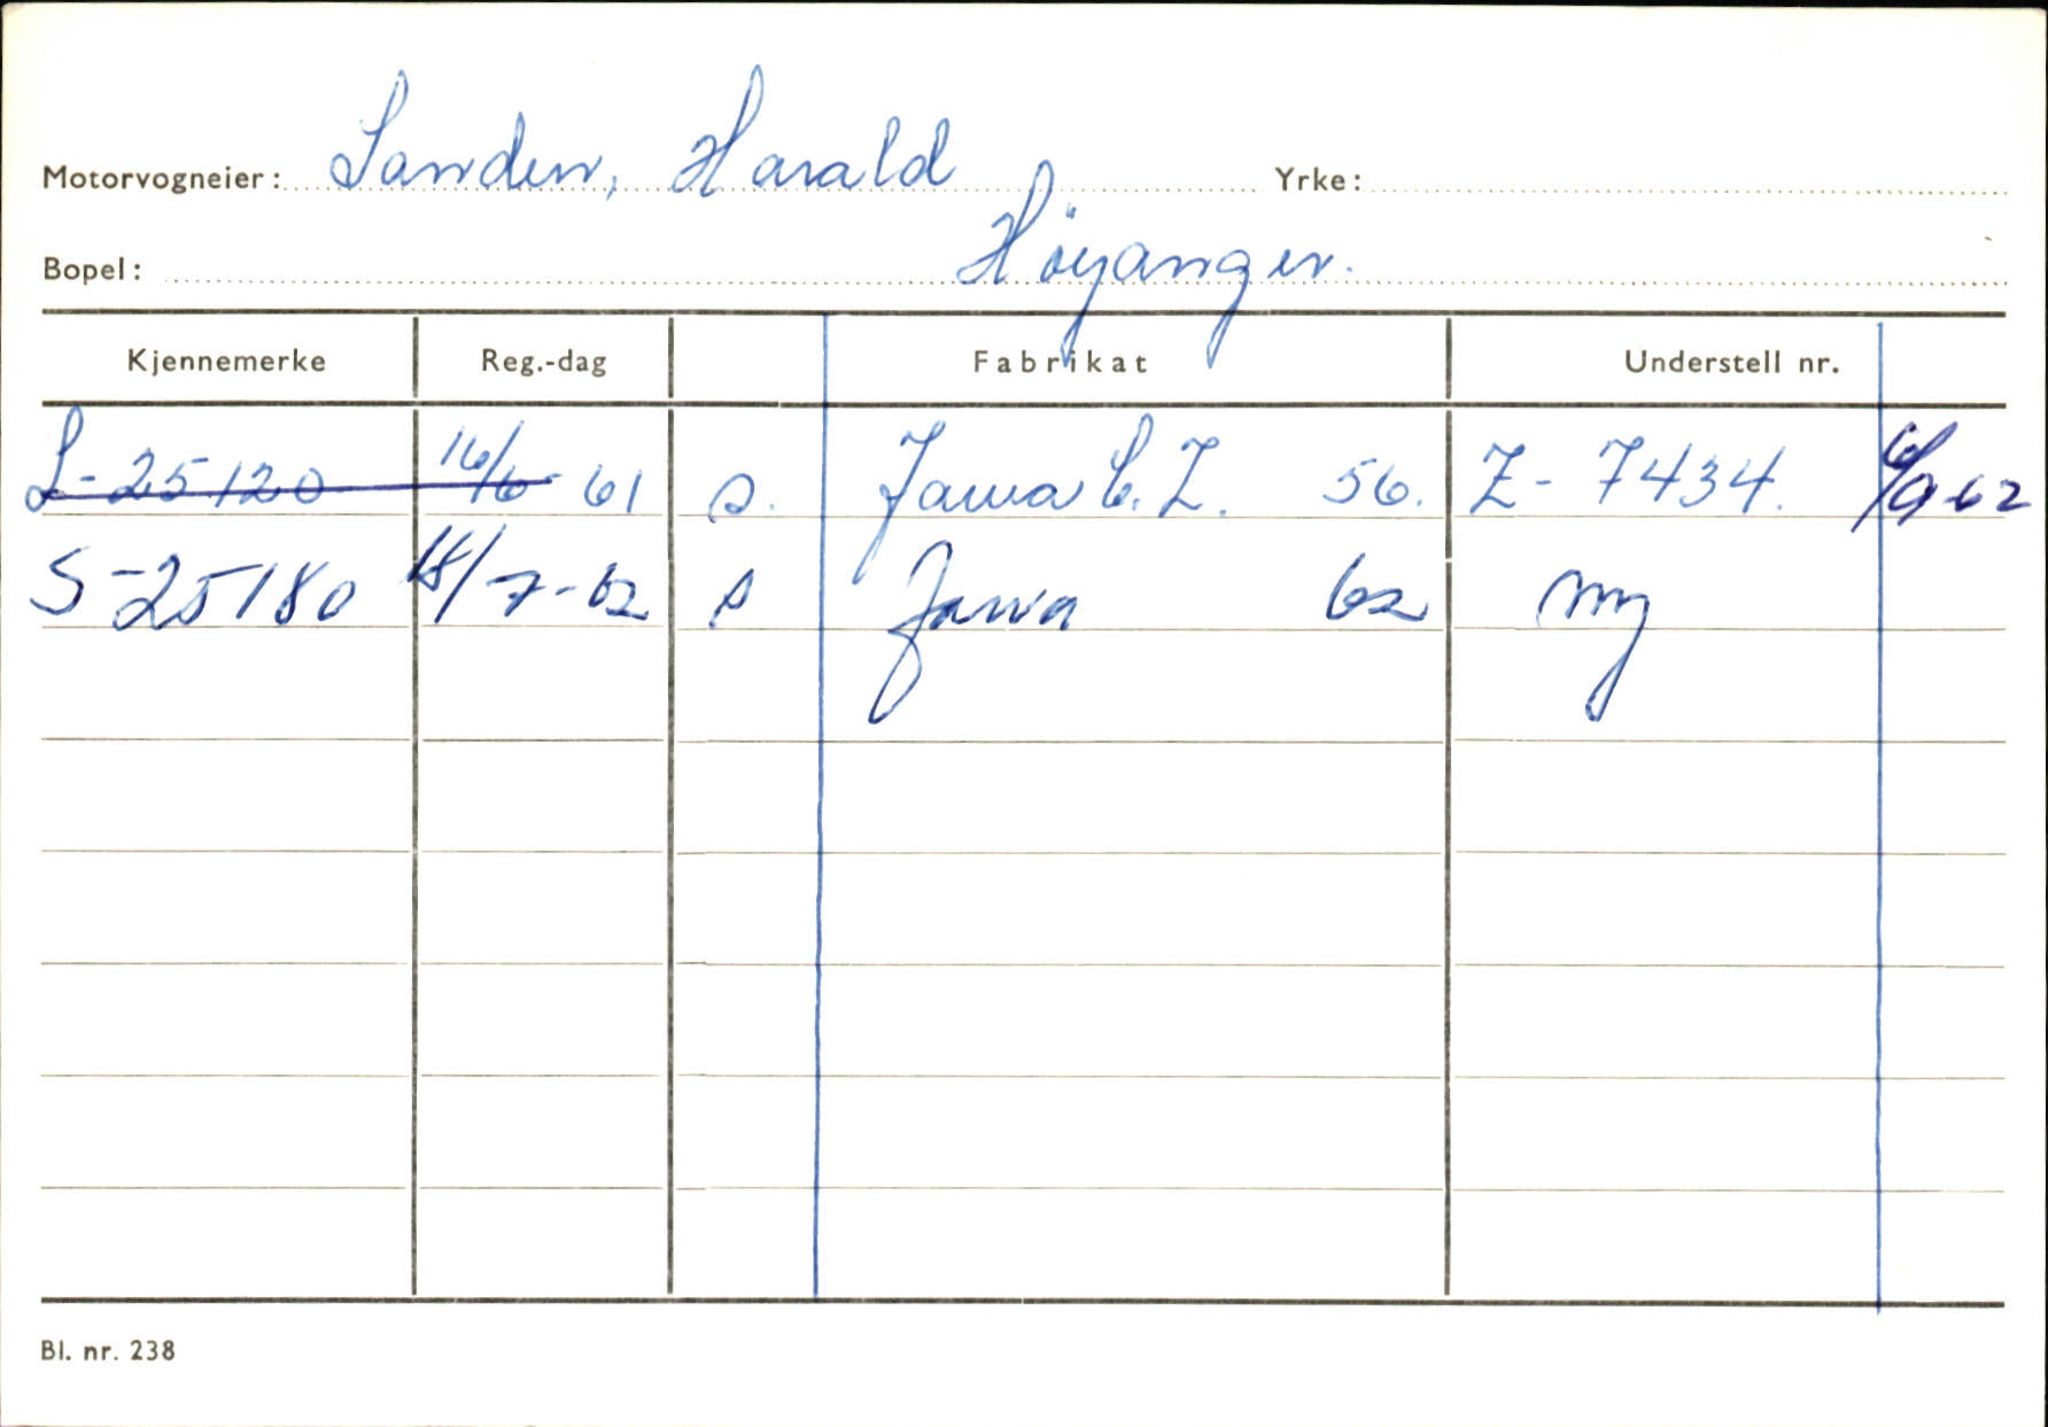 Motorvogneier: Sanden, Harald Yrke:
Bopel: Höyanger.
Kjennemerke Reg.-dag Fabrikat Understell nr.
S-25120 16/6-61 s. Jawa C.Z. 56. Z-7434. 6/9-62
S-25180 18/7-62 s Jawa 62 ny
Bl. nr. 238